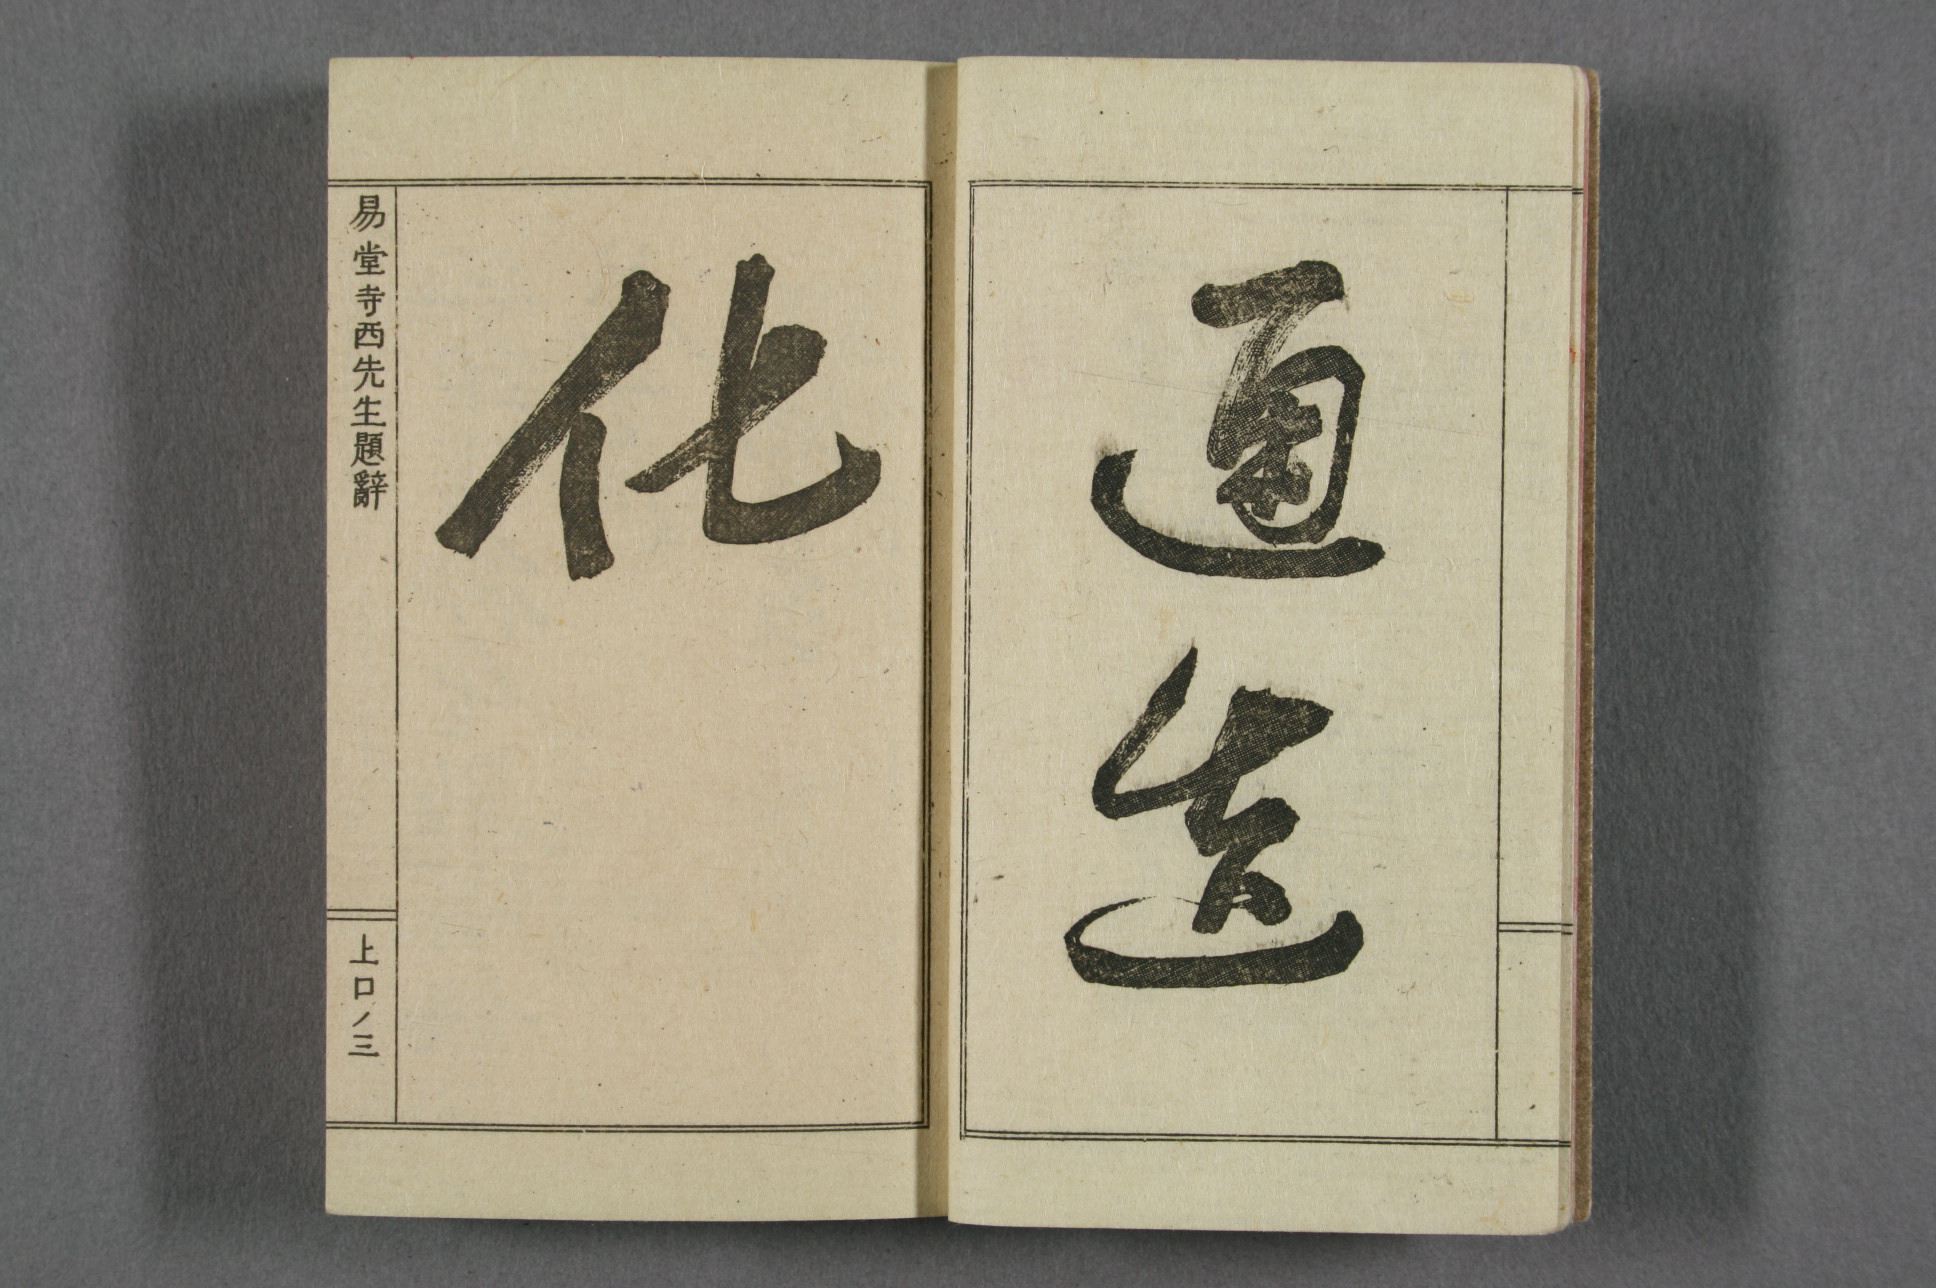 通造
化
易堂寺西先生題辭
上口ノ三